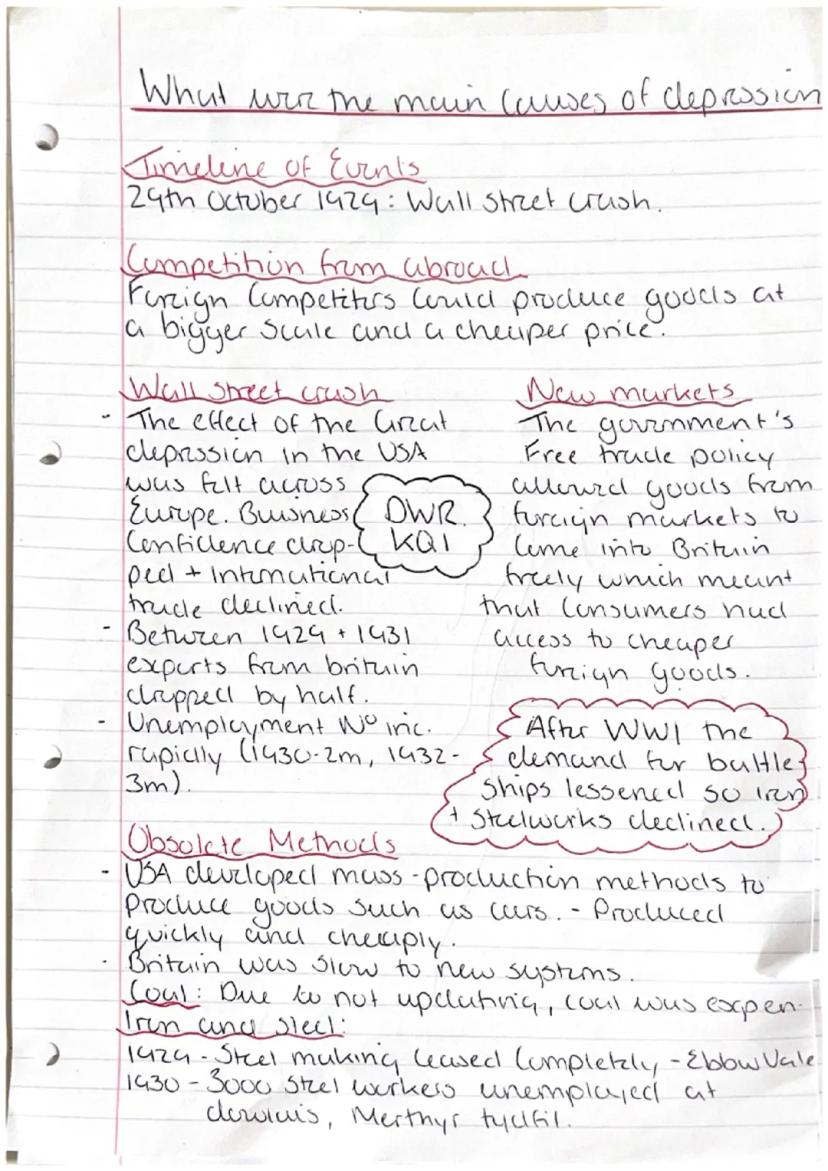 What were the main causes of depression
Timeline of Events
29th October 1929: Wall street crush.
Competition from abroad
Foreign Competitors Could produce goods at
a bigger scale and a cheaper price.
Wall street crush
- The effect of the Great
depression in the USA
was felt across
Europe. Buisness
Confidence drop-
ped + International
trade declined.
- Between 1929 + 1931
exports from britain
dropped by half.
- Unemployment No inc.
rapidly (1930-2m, 1932-
3m).
DWR
KQ1
New markets
The government's
Free trade policy
allowed goods from
foreign markets to
Come into Britain
freely which meant
that Consumers had
access to cheaper
foreign goods.
After WW1 the
demand for battle
ships lessened so Iron
+ Steelworks declined.
Obsolete Methods
- USA developed mass-production methods to
produce goods such as cars. - Produced
quickly and cheaply.
- Britain was slow to new systems.
Coal: Due to not updating, coal was expen-
Iron and steel:
1929 - Steel making Ceased Completely - Ebbw Vale
1930 - 3000 Steel workers unemployed at
dowlais, Merthyr tydfil.